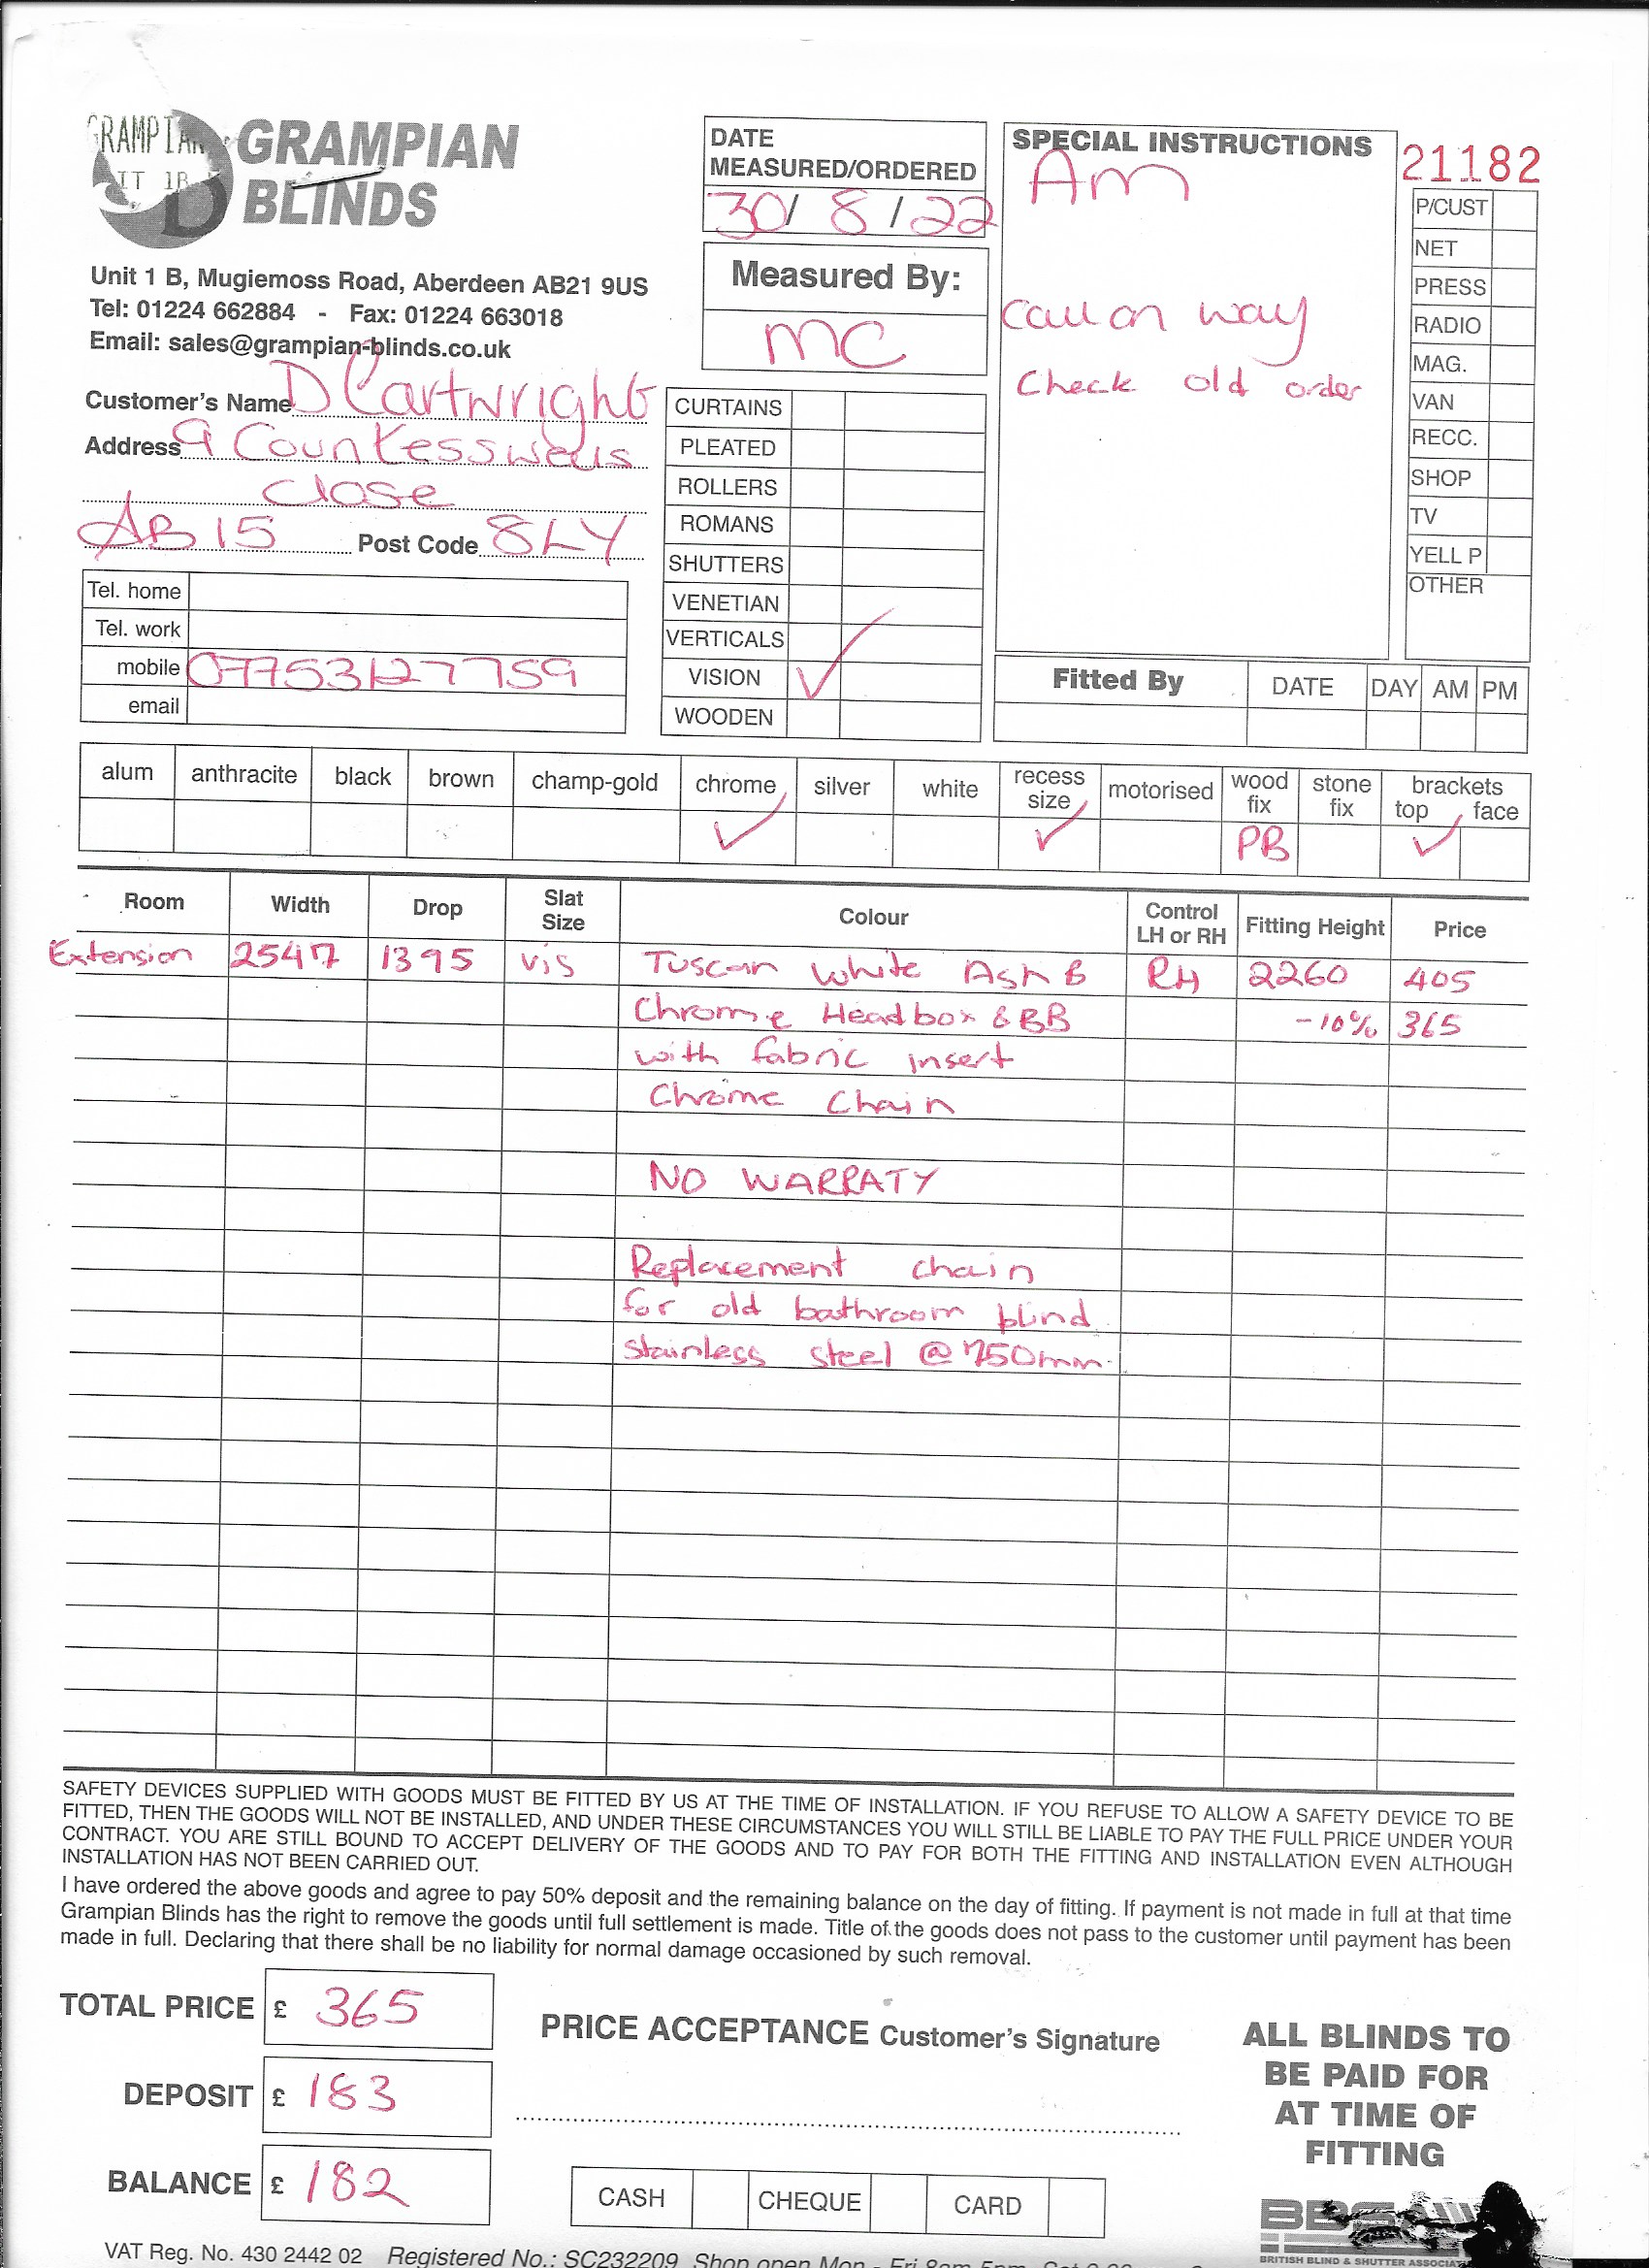 GRAMPIAN
IT 1B
GRAMPIAN
BLINDS
Unit 1 B, Mugiemoss Road, Aberdeen AB21 9US
Tel: 01224 662884 - Fax: 01224 663018
Email: sales@grampian-blinds.co.uk
DATE
MEASURED/ORDERED
30/ 8 / 22
Measured By:
MC
SPECIAL INSTRUCTIONS
Am
Call on way
Check old order
21182
P/CUST
NET
PRESS
RADIO
MAG.
VAN
RECC.
SHOP
TV
YELL P
OTHER
Customer's Name D Cartwright
Address 9 Countesswells
Close
AB15 Post Code 8LY
Tel. home
Tel. work
mobile 07753127759
email
CURTAINS
PLEATED
ROLLERS
ROMANS
SHUTTERS
VENETIAN
VERTICALS
VISION ✓
WOODEN
Fitted By DATE DAY AM PM
alum anthracite black brown champ-gold chrome silver white recess size motorised wood fix stone fix brackets top face
✓ ✓ PB ✓
Room Width Drop Slat Size Colour Control LH or RH Fitting Height Price
Extension 2547 1395 Vis Tuscan White Ash B RH 2260 405
Chrome Headbox & BB -10% 365
with fabric insert
Chrome Chain
NO WARRATY
Replacement chain
for old bathroom blind
stainless steel @ 750mm
SAFETY DEVICES SUPPLIED WITH GOODS MUST BE FITTED BY US AT THE TIME OF INSTALLATION. IF YOU REFUSE TO ALLOW A SAFETY DEVICE TO BE
FITTED, THEN THE GOODS WILL NOT BE INSTALLED, AND UNDER THESE CIRCUMSTANCES YOU WILL STILL BE LIABLE TO PAY THE FULL PRICE UNDER YOUR
CONTRACT. YOU ARE STILL BOUND TO ACCEPT DELIVERY OF THE GOODS AND TO PAY FOR BOTH THE FITTING AND INSTALLATION EVEN ALTHOUGH
INSTALLATION HAS NOT BEEN CARRIED OUT.
I have ordered the above goods and agree to pay 50% deposit and the remaining balance on the day of fitting. If payment is not made in full at that time
Grampian Blinds has the right to remove the goods until full settlement is made. Title of the goods does not pass to the customer until payment has been
made in full. Declaring that there shall be no liability for normal damage occasioned by such removal.
TOTAL PRICE £ 365
DEPOSIT £ 183
BALANCE £ 182
PRICE ACCEPTANCE Customer's Signature
CASH CHEQUE CARD
ALL BLINDS TO
BE PAID FOR
AT TIME OF
FITTING
BRITISH BLIND & SHUTTER
VAT Reg. No. 430 2442 02 Registered No.: SC232209 Shop open Mon - Fri